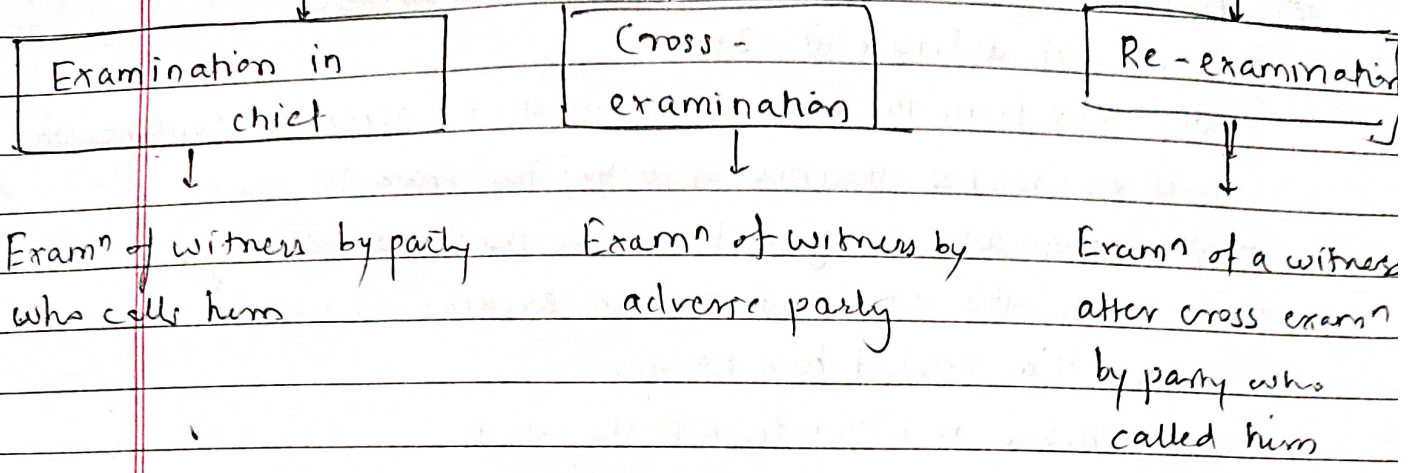 Examination in
chief
Cross -
examination
Re - examination
Examⁿ of witness by party
who calls him
Examⁿ of witness by
adverse party
Examⁿ of a witness
after cross examⁿ
by party who
called him